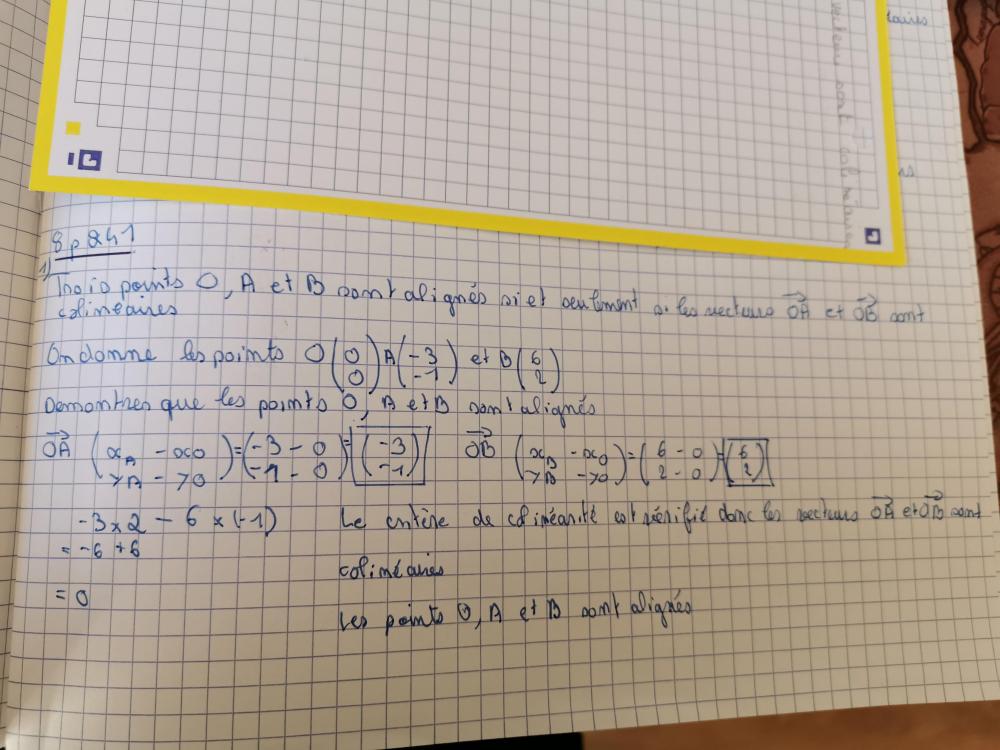 8 p 241
1)
Trois points O, A et B sont alignés si et seulement si les vecteurs OA et OB sont
colinéaires
On donne les points O (0 0) A (-3 -1) et B (6 2)
Demontrer que les points O, A et B sont alignés
OA (xA - xO yA - yO) = (-3 - 0 -1 - 0) = (-3 -1) OB (xB - xO yB - yO) = (6 - 0 2 - 0) = (6 2)
-3 x 2 - 6 x (-1) Le critère de colinéarité est vérifié donc les vecteurs OA et OB sont
= -6 + 6
colinéaires
= 0
Les points O, A et B sont alignés